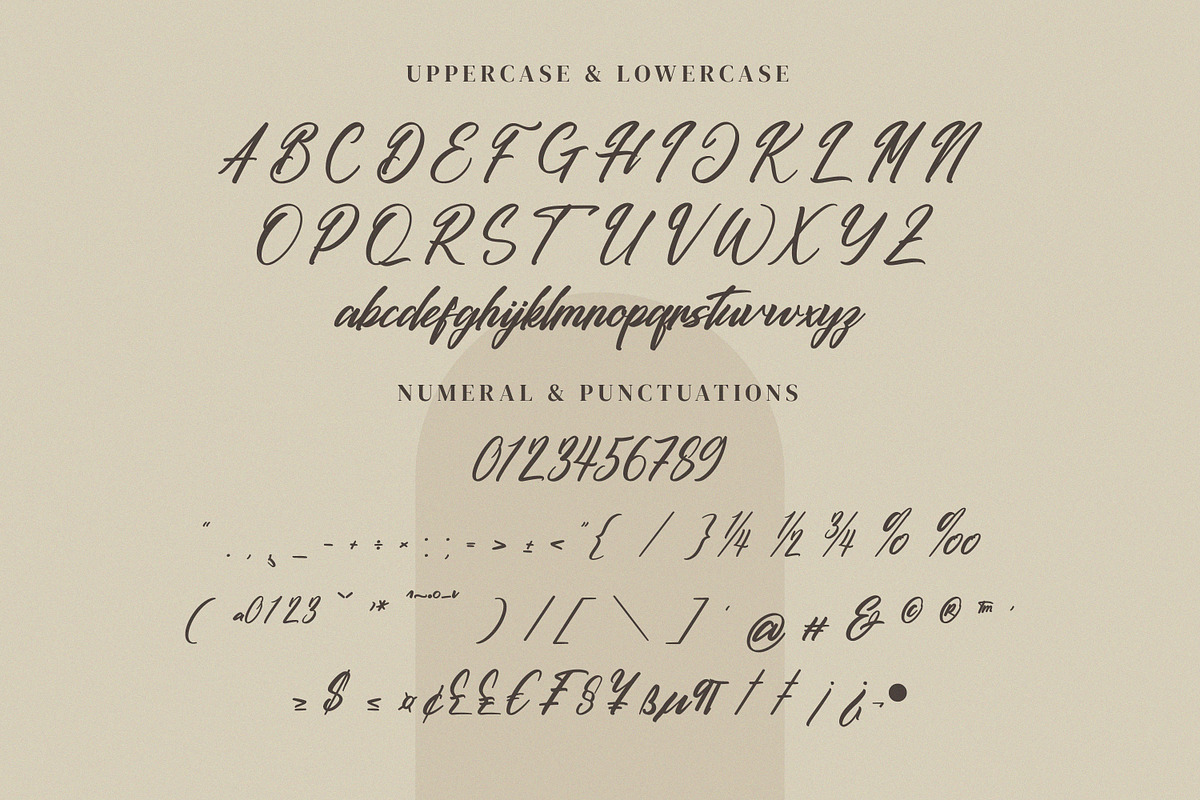 UPPERCASE & LOWERCASE
A B C D E F G H I J K L M N
O P Q R S T U V W X Y Z
abcdefghijklmnopqrstuvwxyz
NUMERAL & PUNCTUATIONS
0123456789
“ . , _ - + ÷ × : ; = > ± < ” { / } ¼ ½ ¾ % ‰
( a0123 * ) / [ \ ] ' @ # & © ® ™ ,
≥ $ ≤ ¤ ¢ £ £ € F § ¥ ß µ π † ‡ ¡ ¿ ¬ •